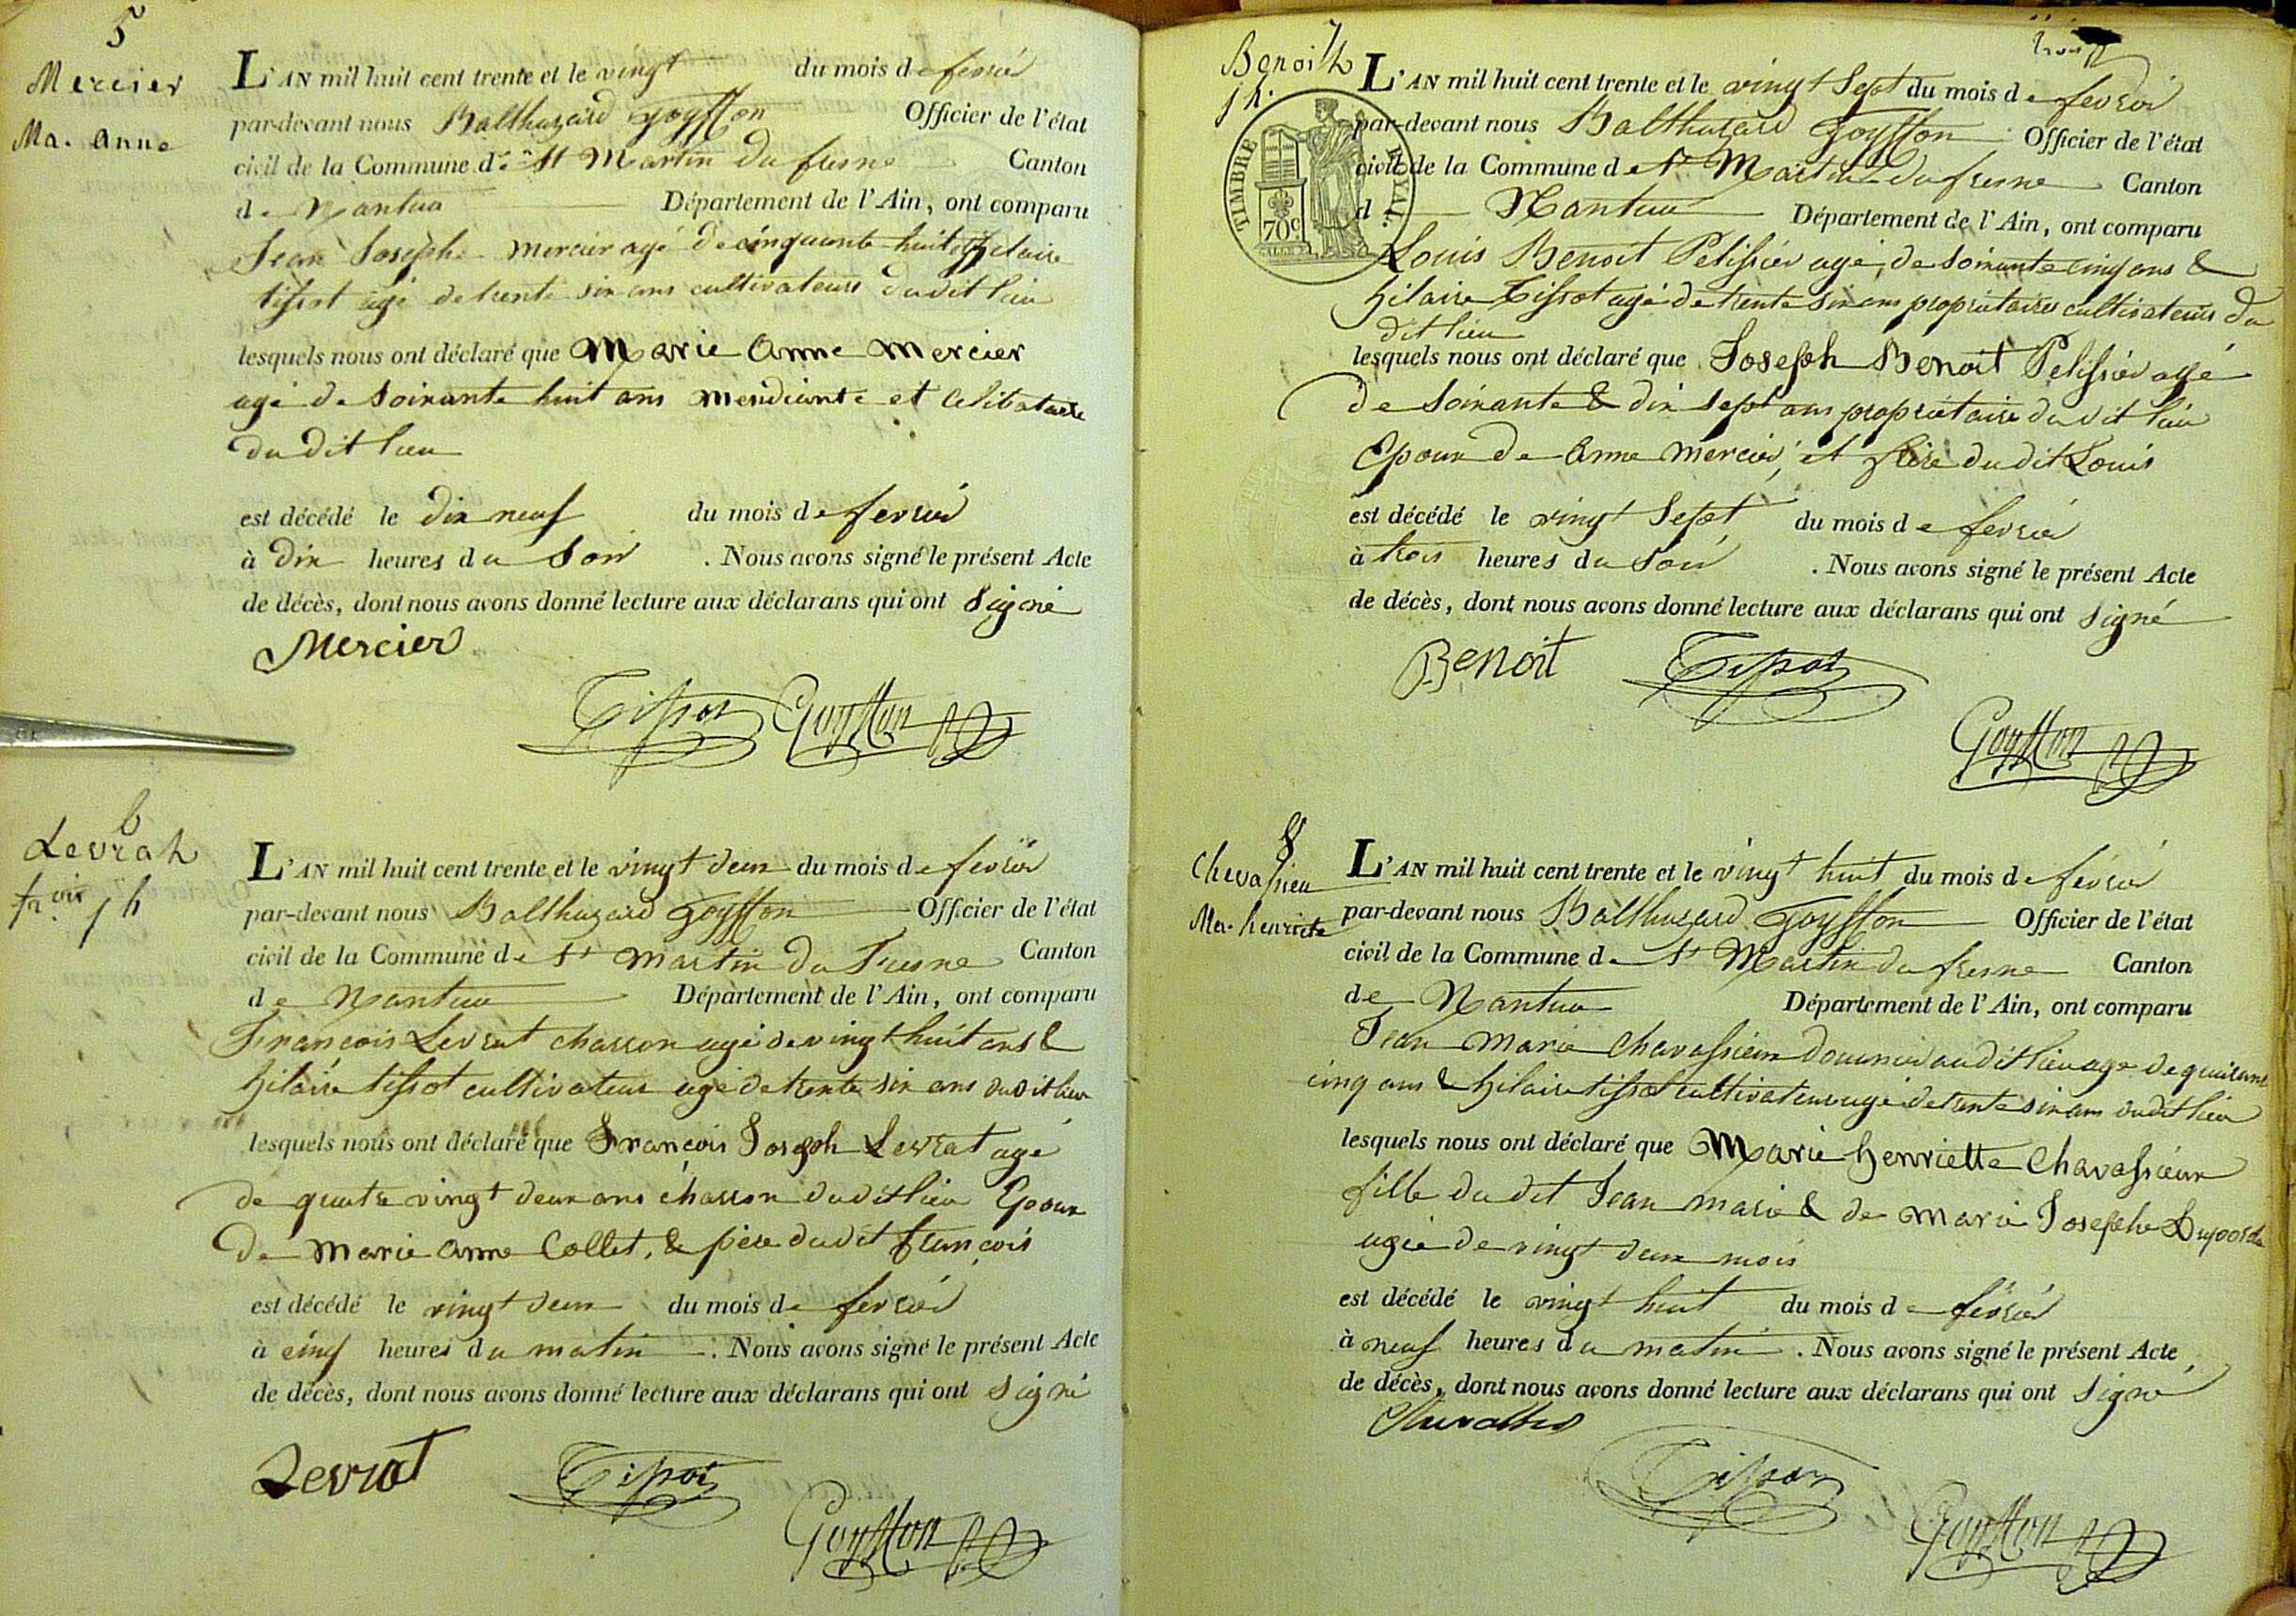 5
Mercier
Ma. Anne
L'AN mil huit cent trente et le vingt du mois de fevrié
par-devant nous Balthazard Goyffon Officier de l'état
civil de la Commune de St Martin du fresne Canton
de Nantua Département de l'Ain, ont comparu
Jean Joseph Mercier agé de cinquante huit & hilaire
tissot agé de trente six ans cultivateurs du dit lieu
lesquels nous ont déclaré que Marie Anne Mercier
agé de soixante huit ans mendiante et celibataire
du dit lieu
est décédé le dix neuf du mois de fevrié
à dix heures du soir . Nous avons signé le présent Acte
de décès, dont nous avons donné lecture aux déclarans qui ont signé
Mercier
Tissot Goyffon
6
Levrat
fr.ois jh
L'AN mil huit cent trente et le vingt deux du mois de fevrié
par-devant nous Balthazard Goyffon Officier de l'état
civil de la Commune de St Martin du Fresne Canton
de Nantua Département de l'Ain, ont comparu
François Levrat charron agé de vingt huit ans &
hilaire tissot cultivateur agé de trente six ans du dit lieu
lesquels nous ont déclaré que François Joseph Levrat agé
de quatre vingt deux ans charron du dit lieu Epoux
de Marie Anne Collet, & père du dit françois
est décédé le vingt deux du mois de fevrié
à cinq heures du matin . Nous avons signé le présent Acte
de décès, dont nous avons donné lecture aux déclarans qui ont signé
Levrat Tissot
Goyffon
trois
7
Benoit
jh.
TIMBRE ROYAL
70c
L'AN mil huit cent trente et le vingt Sept du mois de fevrié
par-devant nous Balthazard Goyffon Officier de l'état
civil de la Commune de St Martin du fresne Canton
de Nantua Département de l'Ain, ont comparu
Louis Benoit Pelissié agé, de soixante cinq ans &
hilaire Tissot agé de trente six ans propriétaires cultivateurs du
dit lieu
lesquels nous ont déclaré que Joseph Benoit Pelissié agé
de soixante & dix sept ans propriétaire du dit lieu
Epoux de Anne Mercié, et frère du dit Louis
est décédé le vingt Sept du mois de fevrié
à trois heures du soir . Nous avons signé le présent Acte
de décès, dont nous avons donné lecture aux déclarans qui ont signé
Benoit Tissot
Goyffon
8
Chevassieu
Ma. henriete
L'AN mil huit cent trente et le vingt huit du mois de fevrié
par-devant nous Balthazard Goyffon Officier de l'état
civil de la Commune de St Martin du fresne Canton
de Nantua Département de l'Ain, ont comparu
Jean Marie Chavassieux au dit lieu agé de quarante
cinq ans & hilaire tissot cultivateur agé de trente six ans du dit lieu
lesquels nous ont déclaré que Marie henriette Chavassieux
fille du dit Jean Marie & de Marie Josephe
agée de vingt deux mois
est décédé le vingt huit du mois de fevrié
à neuf heures du matin . Nous avons signé le présent Acte
de décès, dont nous avons donné lecture aux déclarans qui ont signé
Tissot
Goyffon